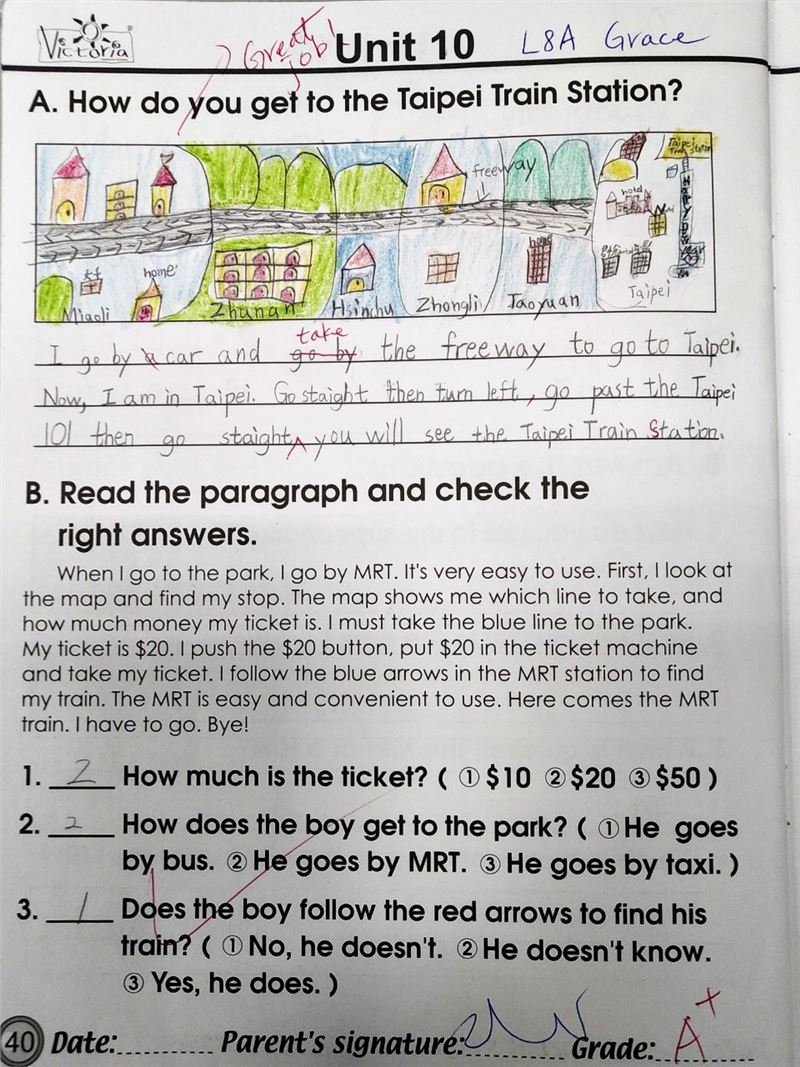 Victoria
Great job!
Unit 10
L8A Grace
A. How do you get to the Taipei Train Station?
Taipei Train Station
freeway
hotel
home
home
Miaoli
Zhunan
Hsinchu
Zhongli
Taoyuan
Taipei
take
I go by a car and go by the freeway to go to Taipei.
Now, I am in Taipei. Go staight then turn left, go past the Taipei
101 then go staight, you will see the Taipei Train Station.
B. Read the paragraph and check the
right answers.
When I go to the park, I go by MRT. It's very easy to use. First, I look at
the map and find my stop. The map shows me which line to take, and
how much money my ticket is. I must take the blue line to the park.
My ticket is $20. I push the $20 button, put $20 in the ticket machine
and take my ticket. I follow the blue arrows in the MRT station to find
my train. The MRT is easy and convenient to use. Here comes the MRT
train. I have to go. Bye!
1. 2 How much is the ticket? ( ① $10 ② $20 ③ $50 )
2. 2 How does the boy get to the park? ( ① He goes
by bus. ② He goes by MRT. ③ He goes by taxi. )
3. 1 Does the boy follow the red arrows to find his
train? ( ① No, he doesn't. ② He doesn't know.
③ Yes, he does. )
40 Date: Parent's signature: Grade: A+